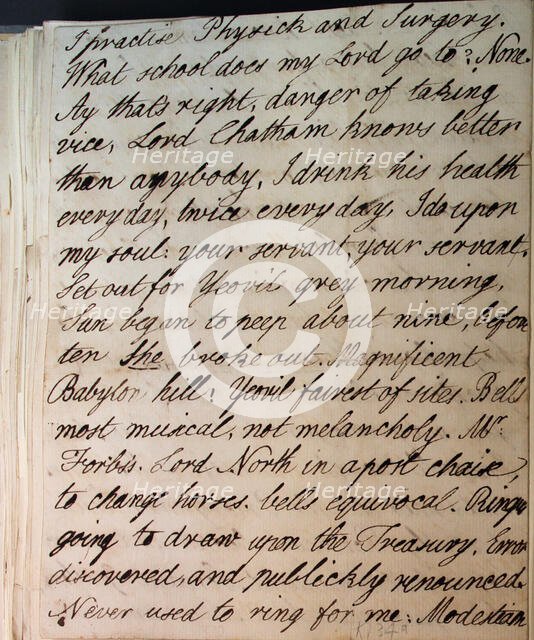 I practise Physick and Surgery.
What school does my Lord go to? None.
Ay that's right, danger of taking
vice, Lord Chatham knows better
than anybody, I drink his health
every day, twice every day, I do upon
my soul: your servant, your servant.
Set out for Yeovil grey morning,
Sun began to peep about nine, before
ten She broke out. Magnificent
Babylon hill! Yeovil fairest of sites. Bells
most musical, not melancholy. Mr.
Forbes's. Lord North in a post chaise
to change horses. bells equivocal. Ringers
going to draw upon the Treasury. Error
discovered, and publickly renounced.
Never used to ring for me: Modestian
Heritage
Heritage
Heritage
Heritage
Heritage
Heritage
Heritage
Heritage
C